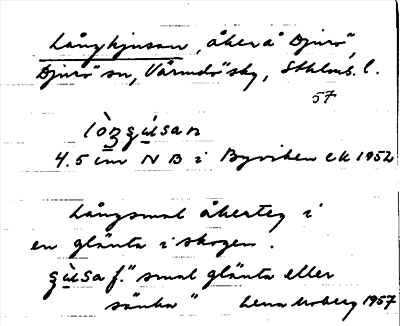 Långhjusan, åker å Djurö,
Djurö sn, Värmdö skg, Sthlms. l.
57
lòngùsan
4.5 cm N B i Byviken ek 1952
Långsmal åkerteg i
en glänta i skogen.
gùsa f. "smal glänta eller
sänka" Lena Moberg 1957